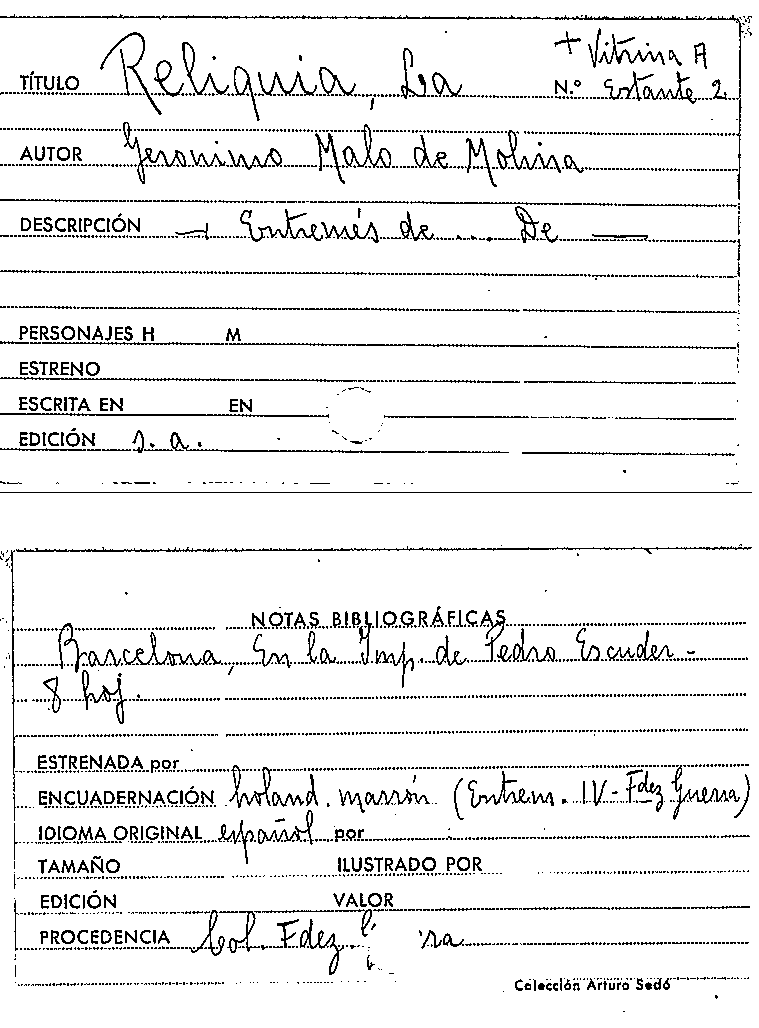 + Vitrina A
TÍTULO Reliquia, La N.º Estante 2
AUTOR Geronimo Malo de Molina
DESCRIPCIÓN — Entremés de ... De —
PERSONAJES H M
ESTRENO
ESCRITA EN EN
EDICIÓN s. a.
NOTAS BIBLIOGRÁFICAS
Barcelona, En la Imp. de Pedro Escuder -
8 hoj.
ESTRENADA por
ENCUADERNACIÓN holand. marrón (Entrem. IV - Fdez Guerra)
IDIOMA ORIGINAL español por
TAMAÑO ILUSTRADO POR
EDICIÓN VALOR
PROCEDENCIA Col. Fdez.
Colección Arturo Sedó